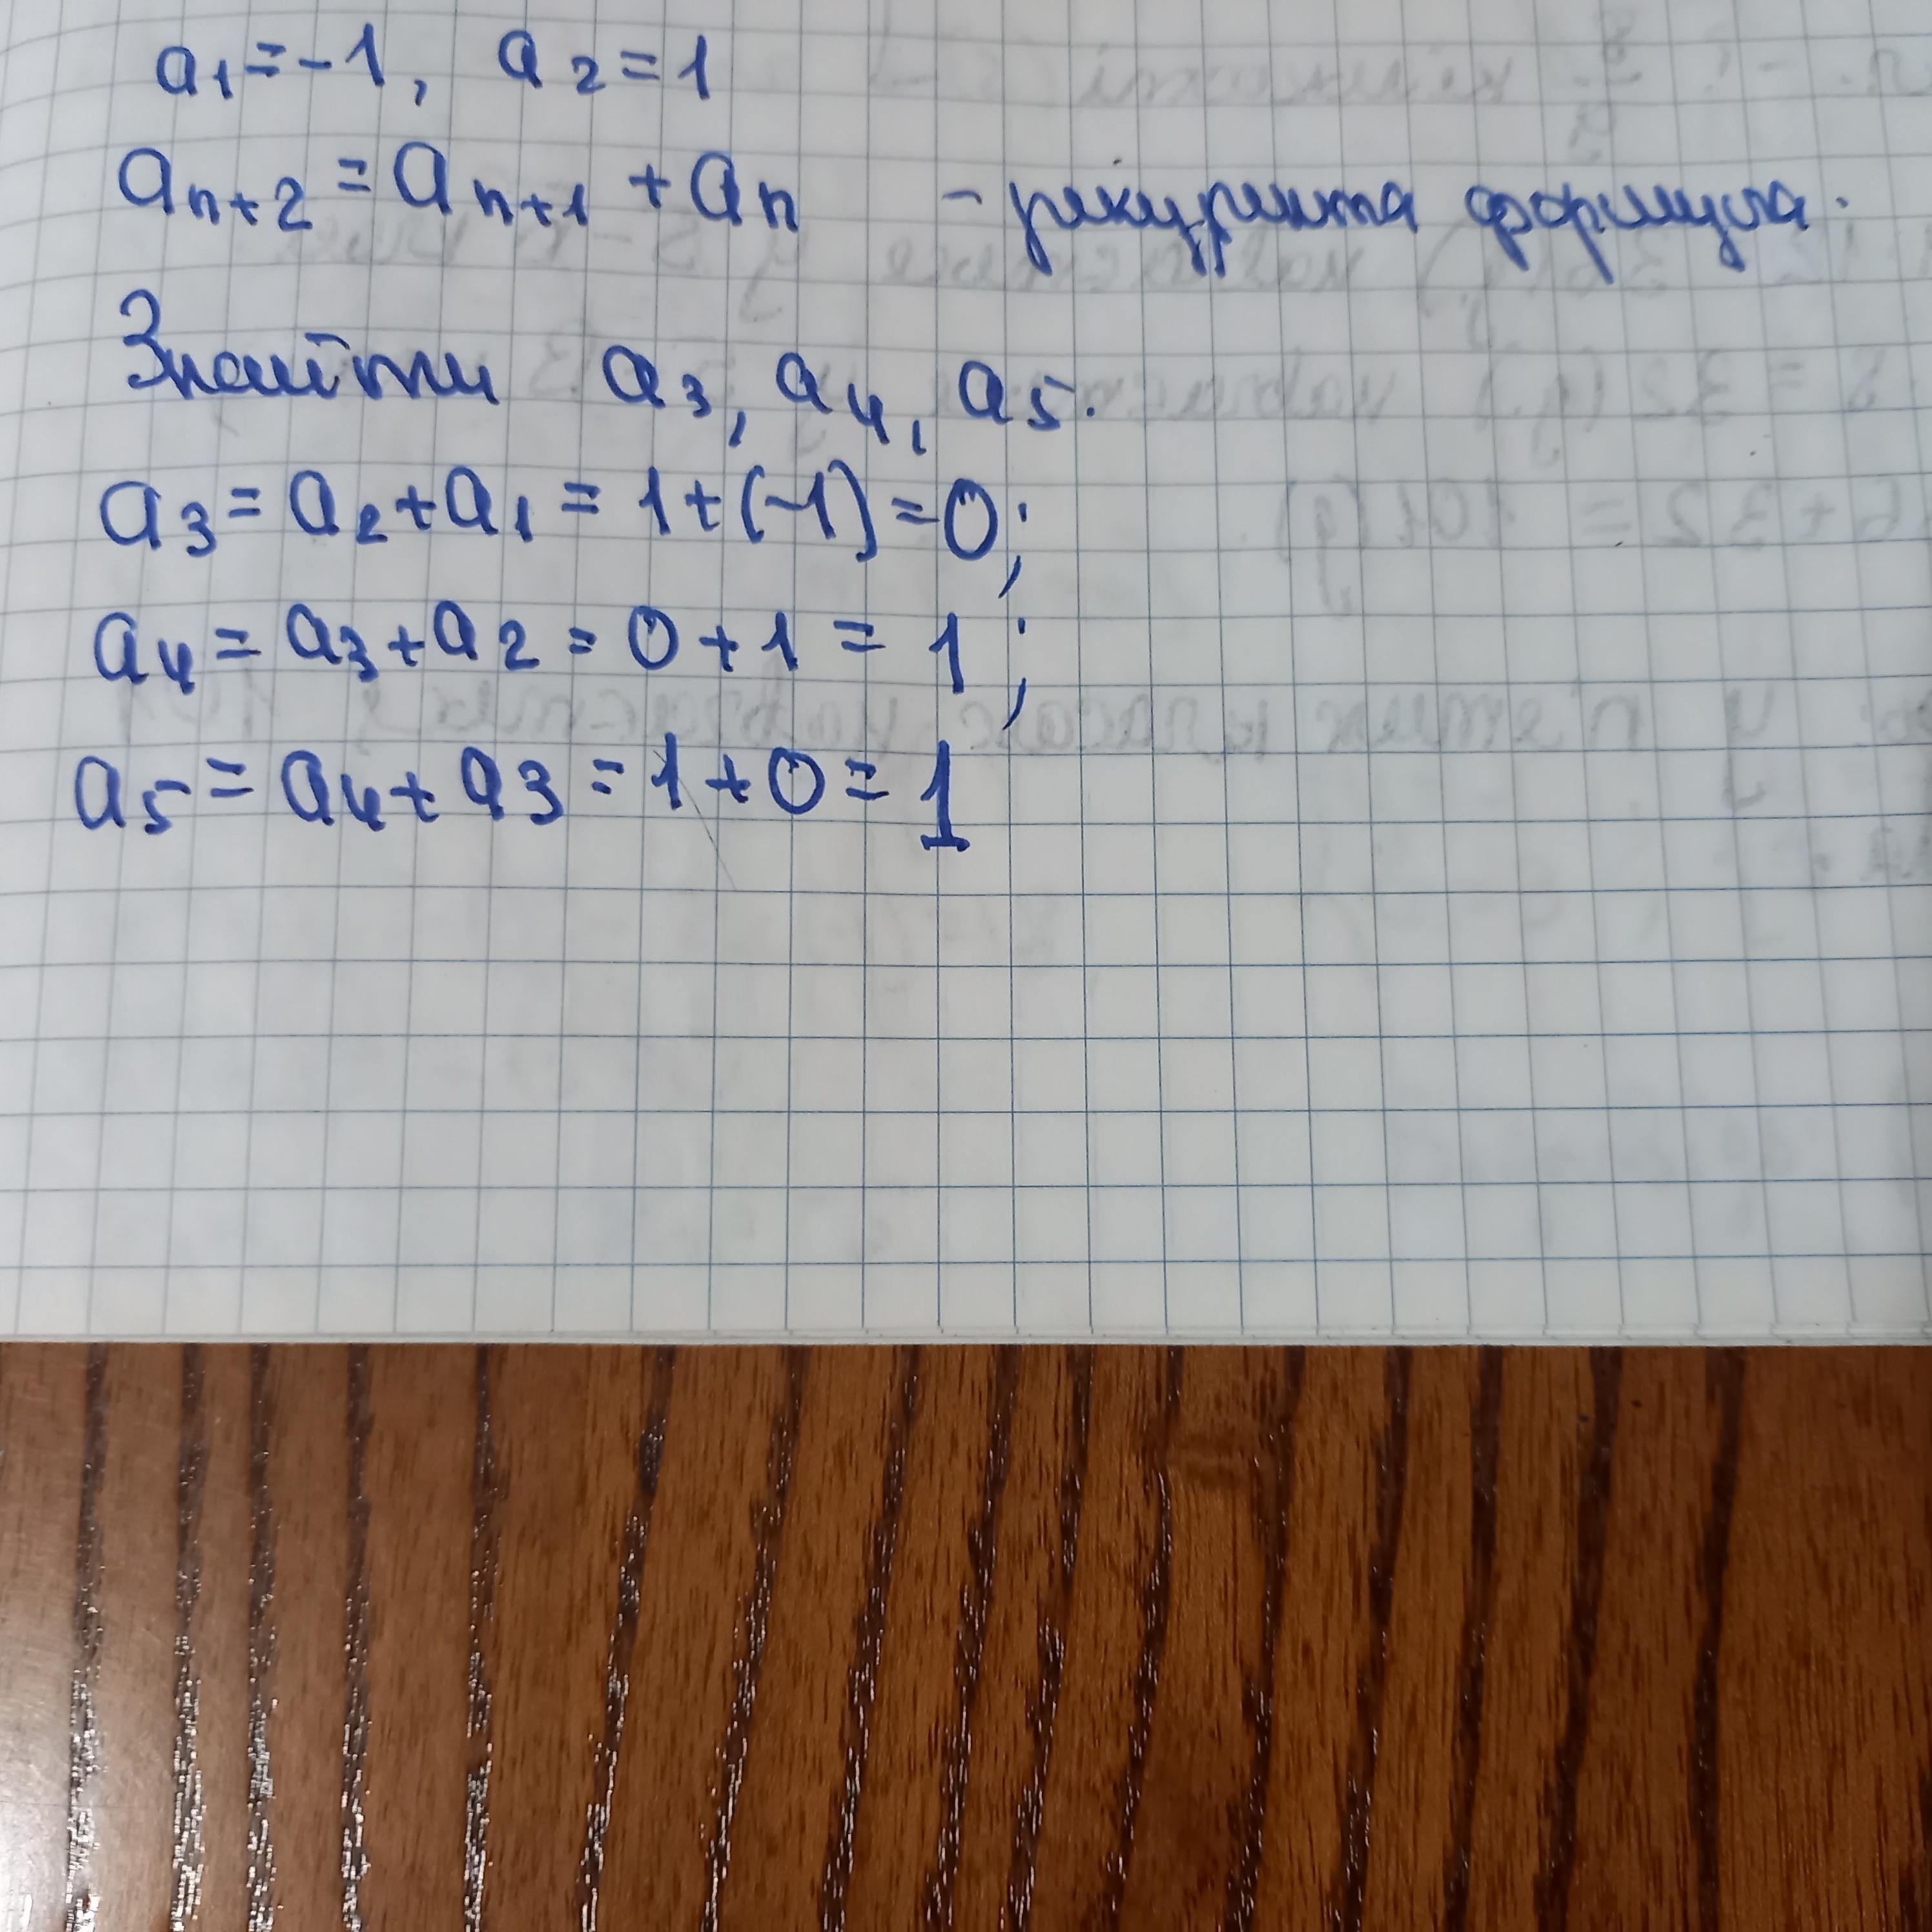 a₁ = -1, a₂ = 1
aₙ₊₂ = aₙ₊₁ + aₙ - рекурента формула.
Знайти a₃, a₄, a₅.
a₃ = a₂ + a₁ = 1 + (-1) = 0;
a₄ = a₃ + a₂ = 0 + 1 = 1;
a₅ = a₄ + a₃ = 1 + 0 = 1